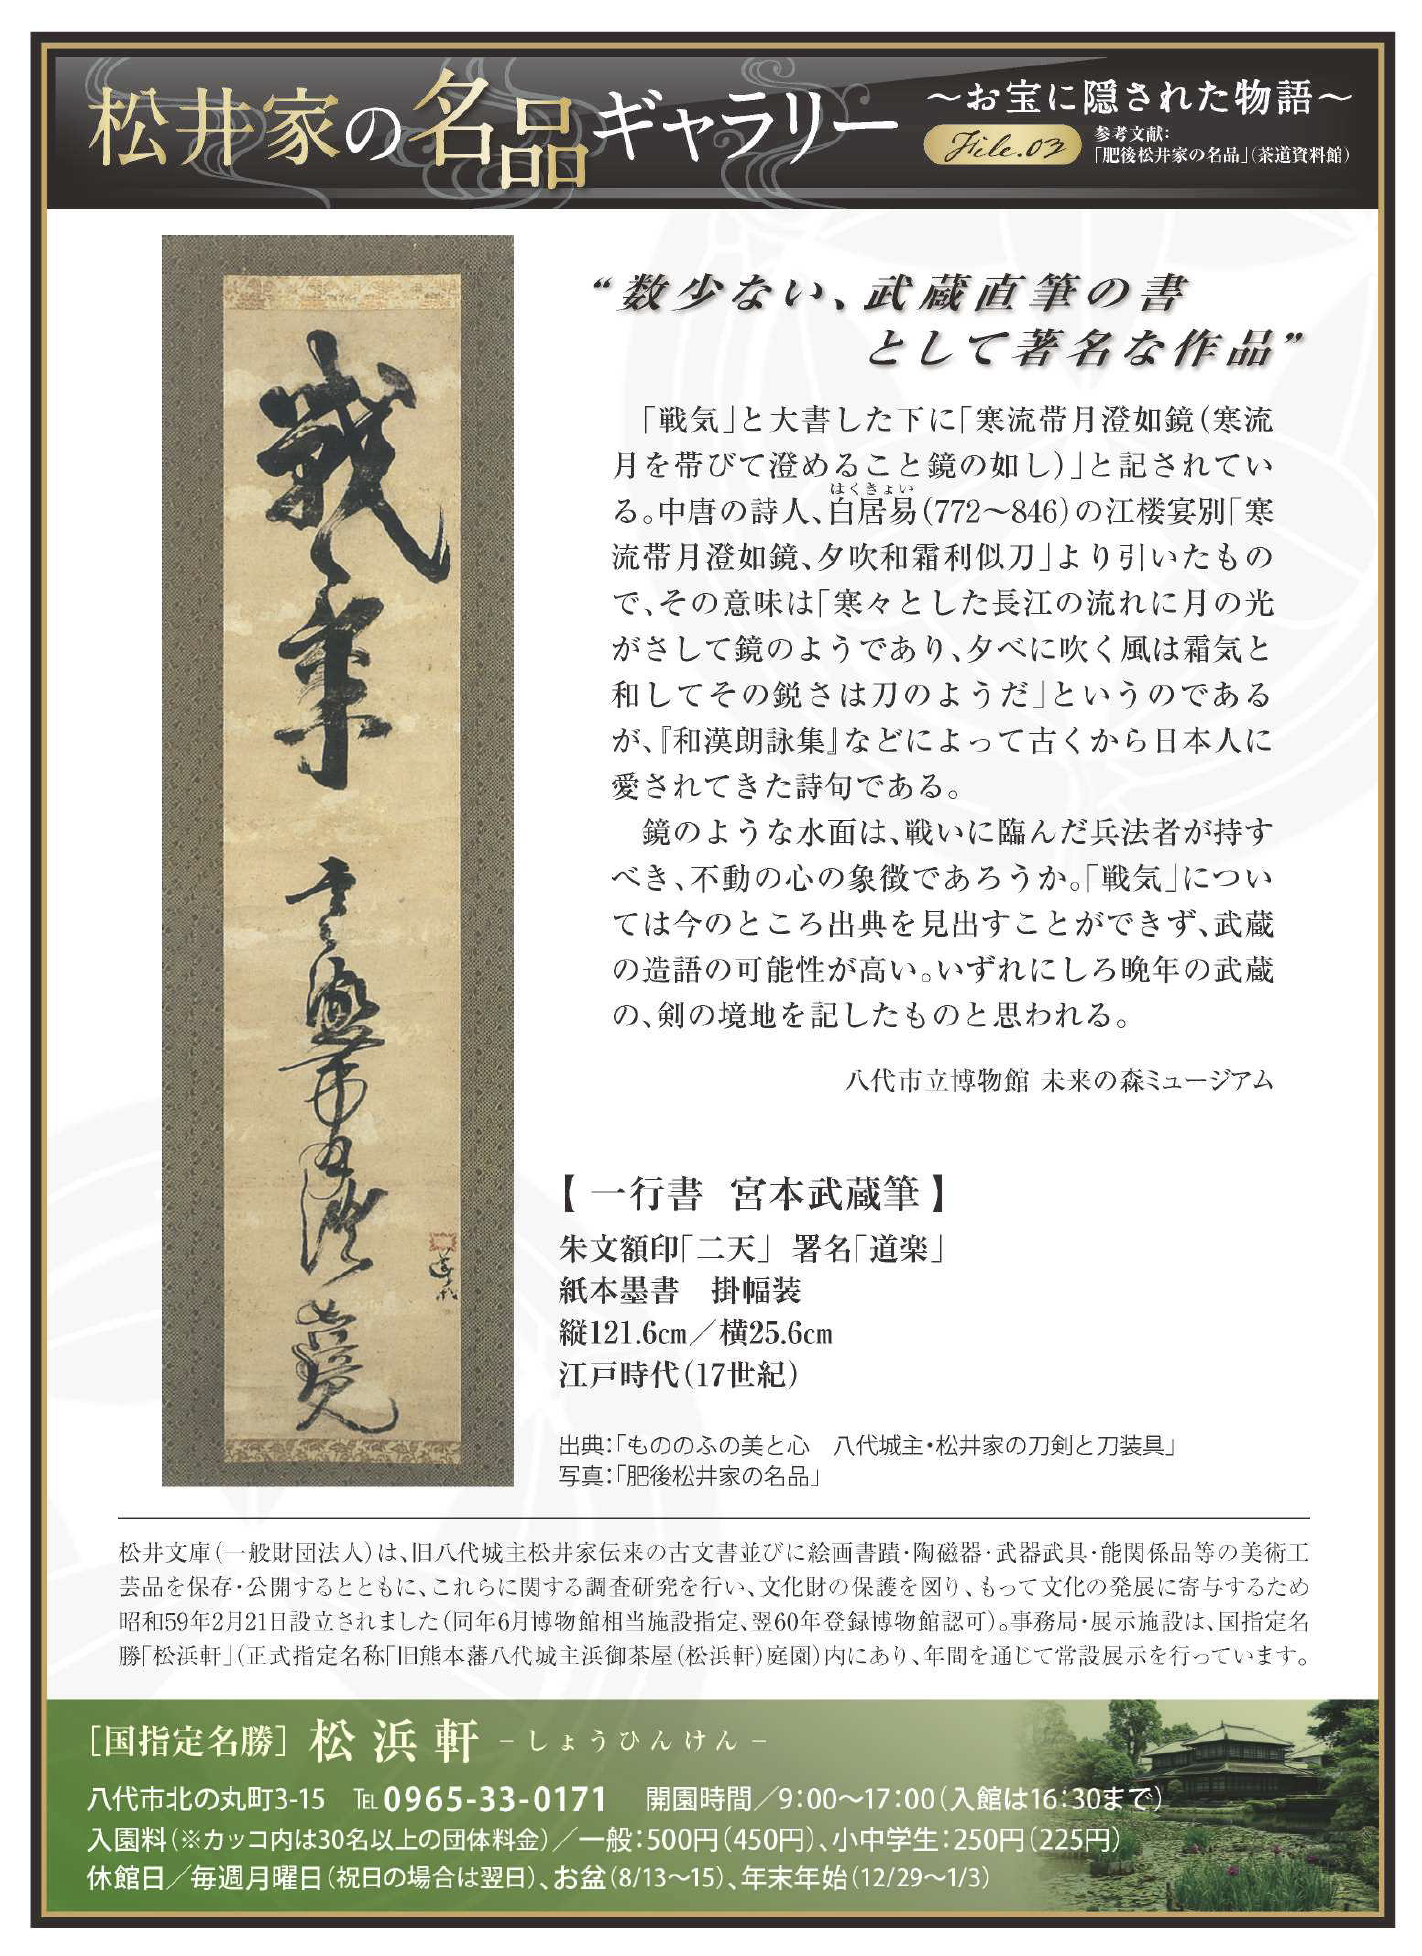 松井家の名品ギャラリー
～お宝に隠された物語～
File.03
参考文献：
「肥後松井家の名品」（茶道資料館）
“数少ない、武蔵直筆の書
として著名な作品”
「戦気」と大書した下に「寒流帯月澄如鏡（寒流
月を帯びて澄めること鏡の如し）」と記されてい
る。中唐の詩人、白居易（772～846）の江楼宴別「寒
はくきょい
流帯月澄如鏡、夕吹和霜利似刀」より引いたもの
で、その意味は「寒々とした長江の流れに月の光
がさして鏡のようであり、夕べに吹く風は霜気と
和してその鋭さは刀のようだ」というのである
が、『和漢朗詠集』などによって古くから日本人に
愛されてきた詩句である。
鏡のような水面は、戦いに臨んだ兵法者が持す
べき、不動の心の象徴であろうか。「戦気」につい
ては今のところ出典を見出すことができず、武蔵
の造語の可能性が高い。いずれにしろ晩年の武蔵
の、剣の境地を記したものと思われる。
八代市立博物館 未来の森ミュージアム
【 一行書 宮本武蔵筆 】
朱文額印「二天」 署名「道楽」
紙本墨書 掛幅装
縦121.6cm／横25.6cm
江戸時代（17世紀）
出典：「もののふの美と心 八代城主・松井家の刀剣と刀装具」
写真：「肥後松井家の名品」
戦気
寒流帯月澄如鏡
松井文庫（一般財団法人）は、旧八代城主松井家伝来の古文書並びに絵画書蹟・陶磁器・武器武具・能関係品等の美術工
芸品を保存・公開するとともに、これらに関する調査研究を行い、文化財の保護を図り、もって文化の発展に寄与するため
昭和59年2月21日設立されました（同年6月博物館相当施設指定、翌60年登録博物館認可）。事務局・展示施設は、国指定名
勝「松浜軒」（正式指定名称「旧熊本藩八代城主浜御茶屋（松浜軒）庭園）内にあり、年間を通じて常設展示を行っています。
［国指定名勝］松浜軒 －しょうひんけん－
八代市北の丸町3-15 TEL 0965-33-0171 開園時間／9：00～17：00（入館は16：30まで）
入園料（※カッコ内は30名以上の団体料金）／一般：500円（450円）、小中学生：250円（225円）
休館日／毎週月曜日（祝日の場合は翌日）、お盆（8/13～15）、年末年始（12/29～1/3）